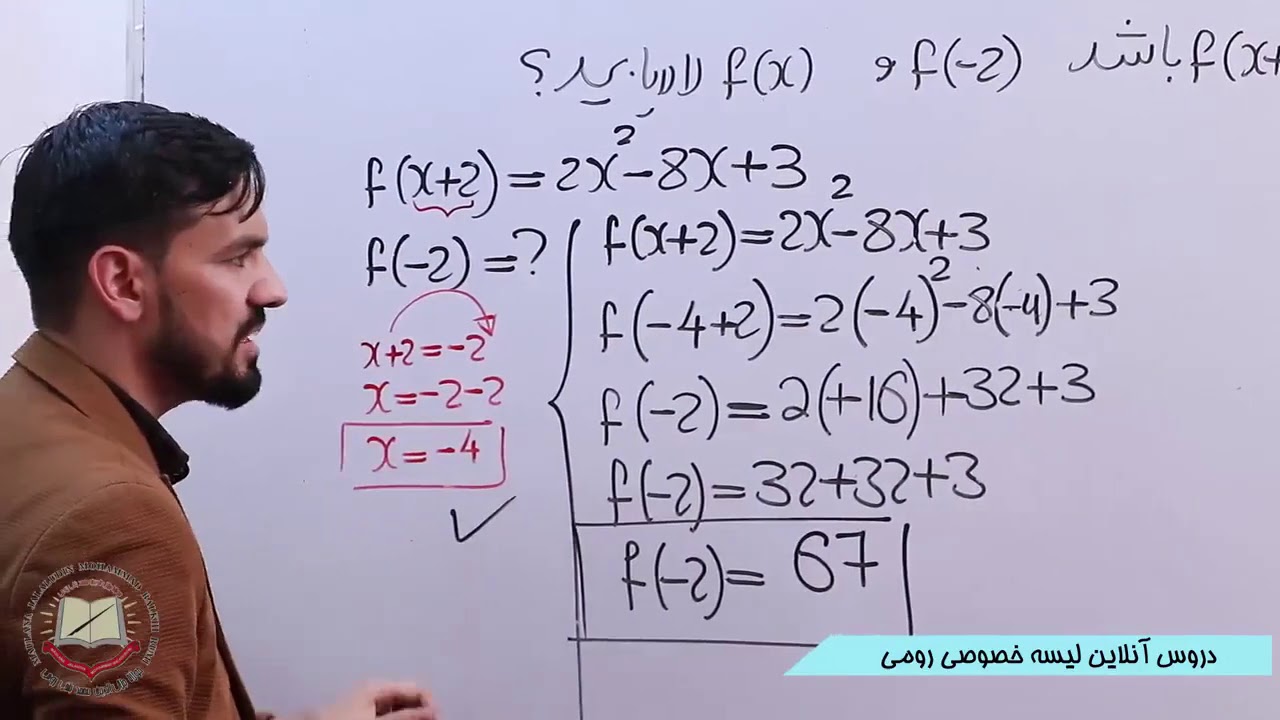 f(x+ باشد f(-2) و f(x) را دریابید؟
f(x+2)=2x²-8x+3
f(-2)=?
x+2=-2
x=-2-2
x=-4
f(x+2)=2x²-8x+3
f(-4+2)=2(-4)²-8(-4)+3
f(-2)=2(+16)+32+3
f(-2)=32+32+3
f(-2)=67
MAULANA JALALUDIN MOHAMMAD BALKHI RUMI
دروس آنلاین لیسه خصوصی رومی